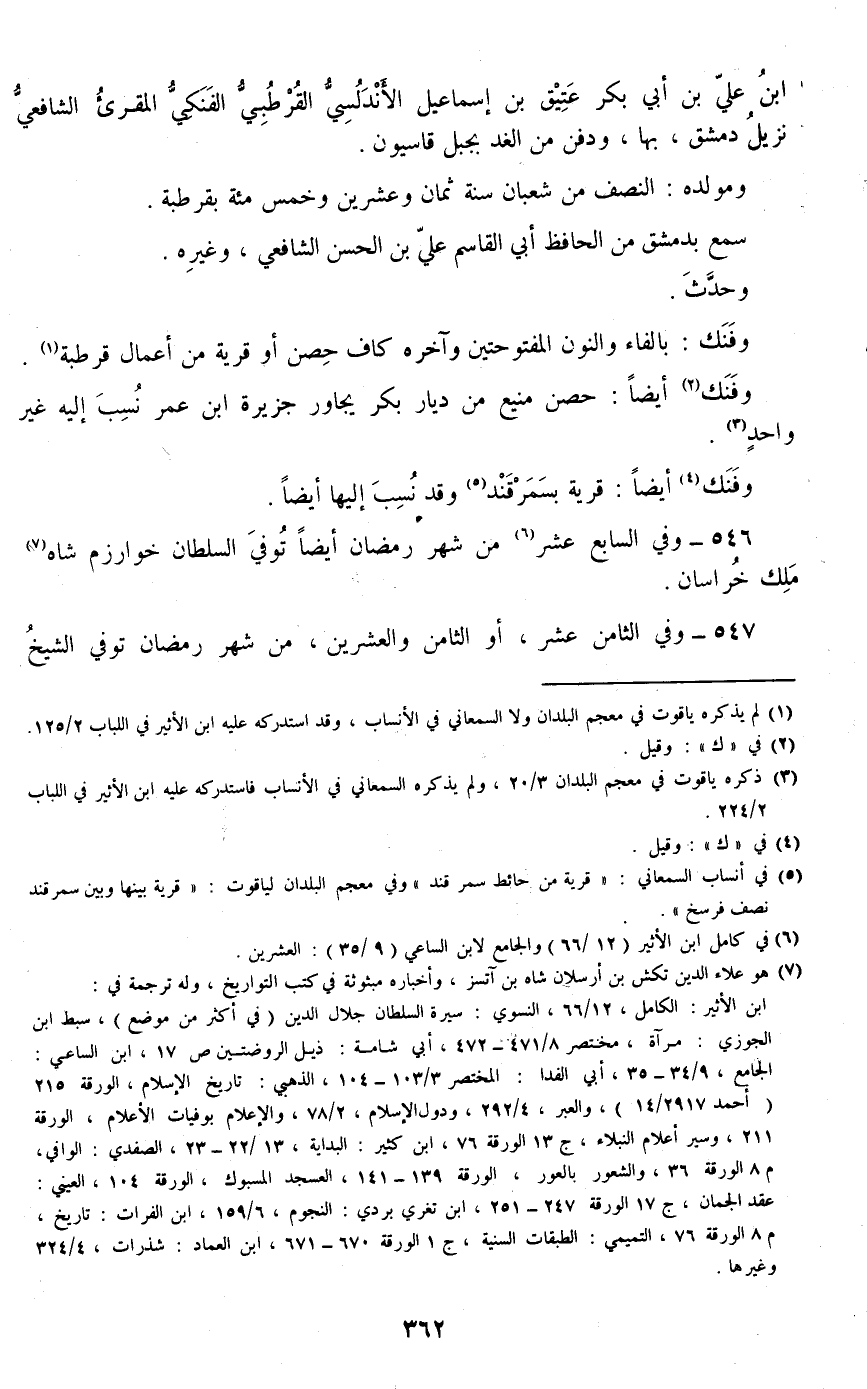 ابنُ عليّ بن أبي بكر عَتِيْق بن إسماعيل الأَنْدَلُسِيُّ القُرْطُبِيُّ الفَنَكِيُّ المقرئُ الشافعيُّ
نزيلُ دمشق ، بها ، ودفن من الغد بجبل قاسيون .
ومولده : النصف من شعبان سنة ثمان وعشرين وخمس مئة بقرطبة .
سمع بدمشق من الحافظ أبي القاسم عليّ بن الحسن الشافعي ، وغيرِه .
وحدَّثَ .
وفَنَك : بالفاء والنون المفتوحتين وآخره كاف حِصن أو قرية من أعمال قرطبة(١) .
وفَنَك(٢) أيضاً : حصن منيع من ديار بكر يجاور جزيرة ابن عمر نُسِبَ إليه غير
واحدٍ(٣) .
وفَنَك(٤) أيضاً : قرية بسَمَرْقَنْد(٥) وقد نُسِبَ إليها أيضاً .
٥٤٦ ــ وفي السابع عشر(٦) من شهر رمضان أيضاً تُوفيَ السلطان خوارزم شاه(٧)
مَلِك خُراسان .
٥٤٧ ــ وفي الثامن عشر ، أو الثامن والعشرين ، من شهر رمضان توفي الشيخُ
(١) لم يذكره ياقوت في معجم البلدان ولا السمعاني في الأنساب ، وقد استدركه عليه ابن الأثير في اللباب ١٢٥/٢.
(٢) في « ك » : وقيل .
(٣) ذكره ياقوت في معجم البلدان ٢٠/٣ ، ولم يذكره السمعاني في الأنساب فاستدركه عليه ابن الأثير في اللباب
٢٢٤/٢ .
(٤) في « ك » : وقيل .
(٥) في أنساب السمعاني : « قرية من حائط سمر قند » وفي معجم البلدان لياقوت : « قرية بينها وبين سمرقند
نصف فرسخ » .
(٦) في كامل ابن الأثير ( ١٢ /٦٦ ) والجامع لابن الساعي ( ٩ /٣٥ ) : العشرين .
(٧) هو علاء الدين تكش بن أرسلان شاه بن آتسز ، وأخباره مبثوثة في كتب التواريخ ، وله ترجمة في :
ابن الأثير : الكامل ، ٦٦/١٢ ، النسوي : سيرة السلطان جلال الدين ( في أكثر من موضع ) ، سبط ابن
الجوزي : مرآة ، مختصر ٤٧١/٨ ــ ٤٧٢ ، أبي شامة : ذيل الروضتين ص ١٧ ، ابن الساعي :
الجامع ، ٣٤/٩ ــ ٣٥ ، أبي الفدا : المختصر ١٠٣/٣ ــ ١٠٤ ، الذهبي : تاريخ الإسلام ، الورقة ٢١٥
( أحمد ١٤/٢٩١٧ ) ، والعبر ، ٢٩٢/٤ ، ودول الإسلام ، ٧٨/٢ ، والإعلام بوفيات الأعلام ، الورقة
٢١١ ، وسير أعلام النبلاء ، ج ١٣ الورقة ٧٦ ، ابن كثير : البداية ، ١٣ /٢٢ ــ ٢٣ ، الصفدي : الوافي ،
م ٨ الورقة ٣٦ ، والشعور بالعور ، الورقة ١٣٩ ــ ١٤١ ، العسجد المسبوك ، الورقة ١٠٤ ، العيني :
عقد الجمان ، ج ١٧ الورقة ٢٤٧ ــ ٢٥١ ، ابن تغري بردي : النجوم ، ١٥٩/٦ ، ابن الفرات : تاريخ ،
م ٨ الورقة ٧٦ ، التميمي : الطبقات السنية ، ج ١ الورقة ٦٧٠ ــ ٦٧١ ، ابن العماد : شذرات ، ٣٢٤/٤
وغيرها .
٣٦٢